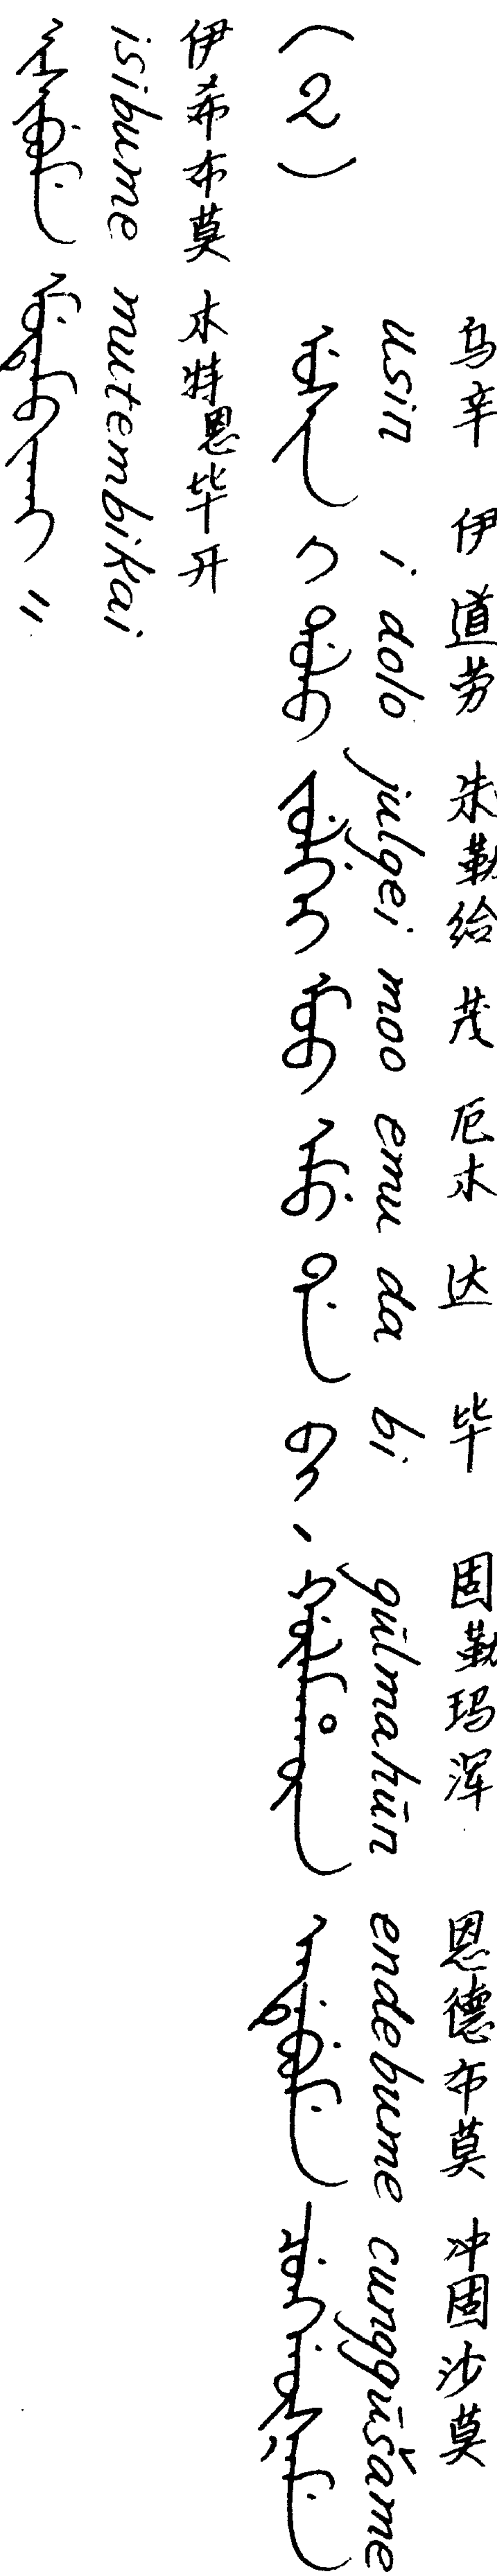 乌辛 伊 道劳 朱勒给 茂 厄木 达 毕 固勒玛浑 恩德布莫 冲固沙莫
(2) usin i dolo julgei moo emu da bi gūlmahūn endebume cunggūšame
ᡠᠰᡳᠨ ᡳ ᡩᠣᠯᠣ ᠵᡠᠯᡤᡝᡳ ᠮᠣᠣ ᡝᠮᡠ ᡩᠠ ᠪᡳ᠈ ᡤᡡᠯᠮᠠᡥᡡᠨ ᡝᠨᡩᡝᠪᡠᠮᡝ ᠴᡠᠩᡤᡡᡧᠠᠮᡝ
伊希布莫 木特恩毕开
isibume mutembikai
ᡳᠰᡳᠪᡠᠮᡝ ᠮᡠᡨᡝᠮᠪᡳᡴᠠᡳ᠉